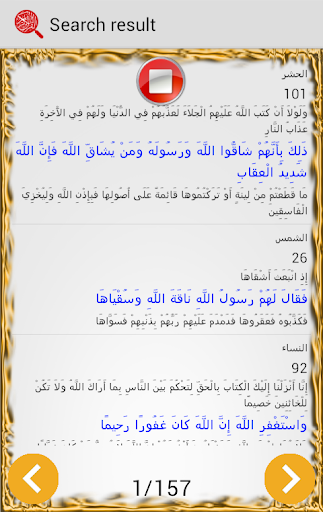 Search result
الحشر
101
وَلَوْلَا أَن كَتَبَ اللَّهُ عَلَيْهِمُ الْجَلَاءَ لَعَذَّبَهُمْ فِي الدُّنْيَا وَلَهُمْ فِي الْآخِرَةِ
عَذَابُ النَّارِ
ذَلِكَ بِأَنَّهُمْ شَاقُّوا اللَّهَ وَرَسُولَهُ وَمَنْ يُشَاقِّ اللَّهَ فَإِنَّ اللَّهَ
شَدِيدُ الْعِقَابِ
مَا قَطَعْتُمْ مِنْ لِينَةٍ أَوْ تَرَكْتُمُوهَا قَائِمَةً عَلَى أُصُولِهَا فَبِإِذْنِ اللَّهِ وَلِيُخْزِيَ
الْفَاسِقِينَ
الشمس
26
إِذِ انْبَعَثَ أَشْقَاهَا
فَقَالَ لَهُمْ رَسُولُ اللَّهِ نَاقَةَ اللَّهِ وَسُقْيَاهَا
فَكَذَّبُوهُ فَعَقَرُوهَا فَدَمْدَمَ عَلَيْهِمْ رَبُّهُمْ بِذَنْبِهِمْ فَسَوَّاهَا
النساء
92
إِنَّا أَنْزَلْنَا إِلَيْكَ الْكِتَابَ بِالْحَقِّ لِتَحْكُمَ بَيْنَ النَّاسِ بِمَا أَرَاكَ اللَّهُ وَلَا تَكُنْ
لِلْخَائِنِينَ خَصِيمًا
وَاسْتَغْفِرِ اللَّهَ إِنَّ اللَّهَ كَانَ غَفُورًا رَحِيمًا
1/157